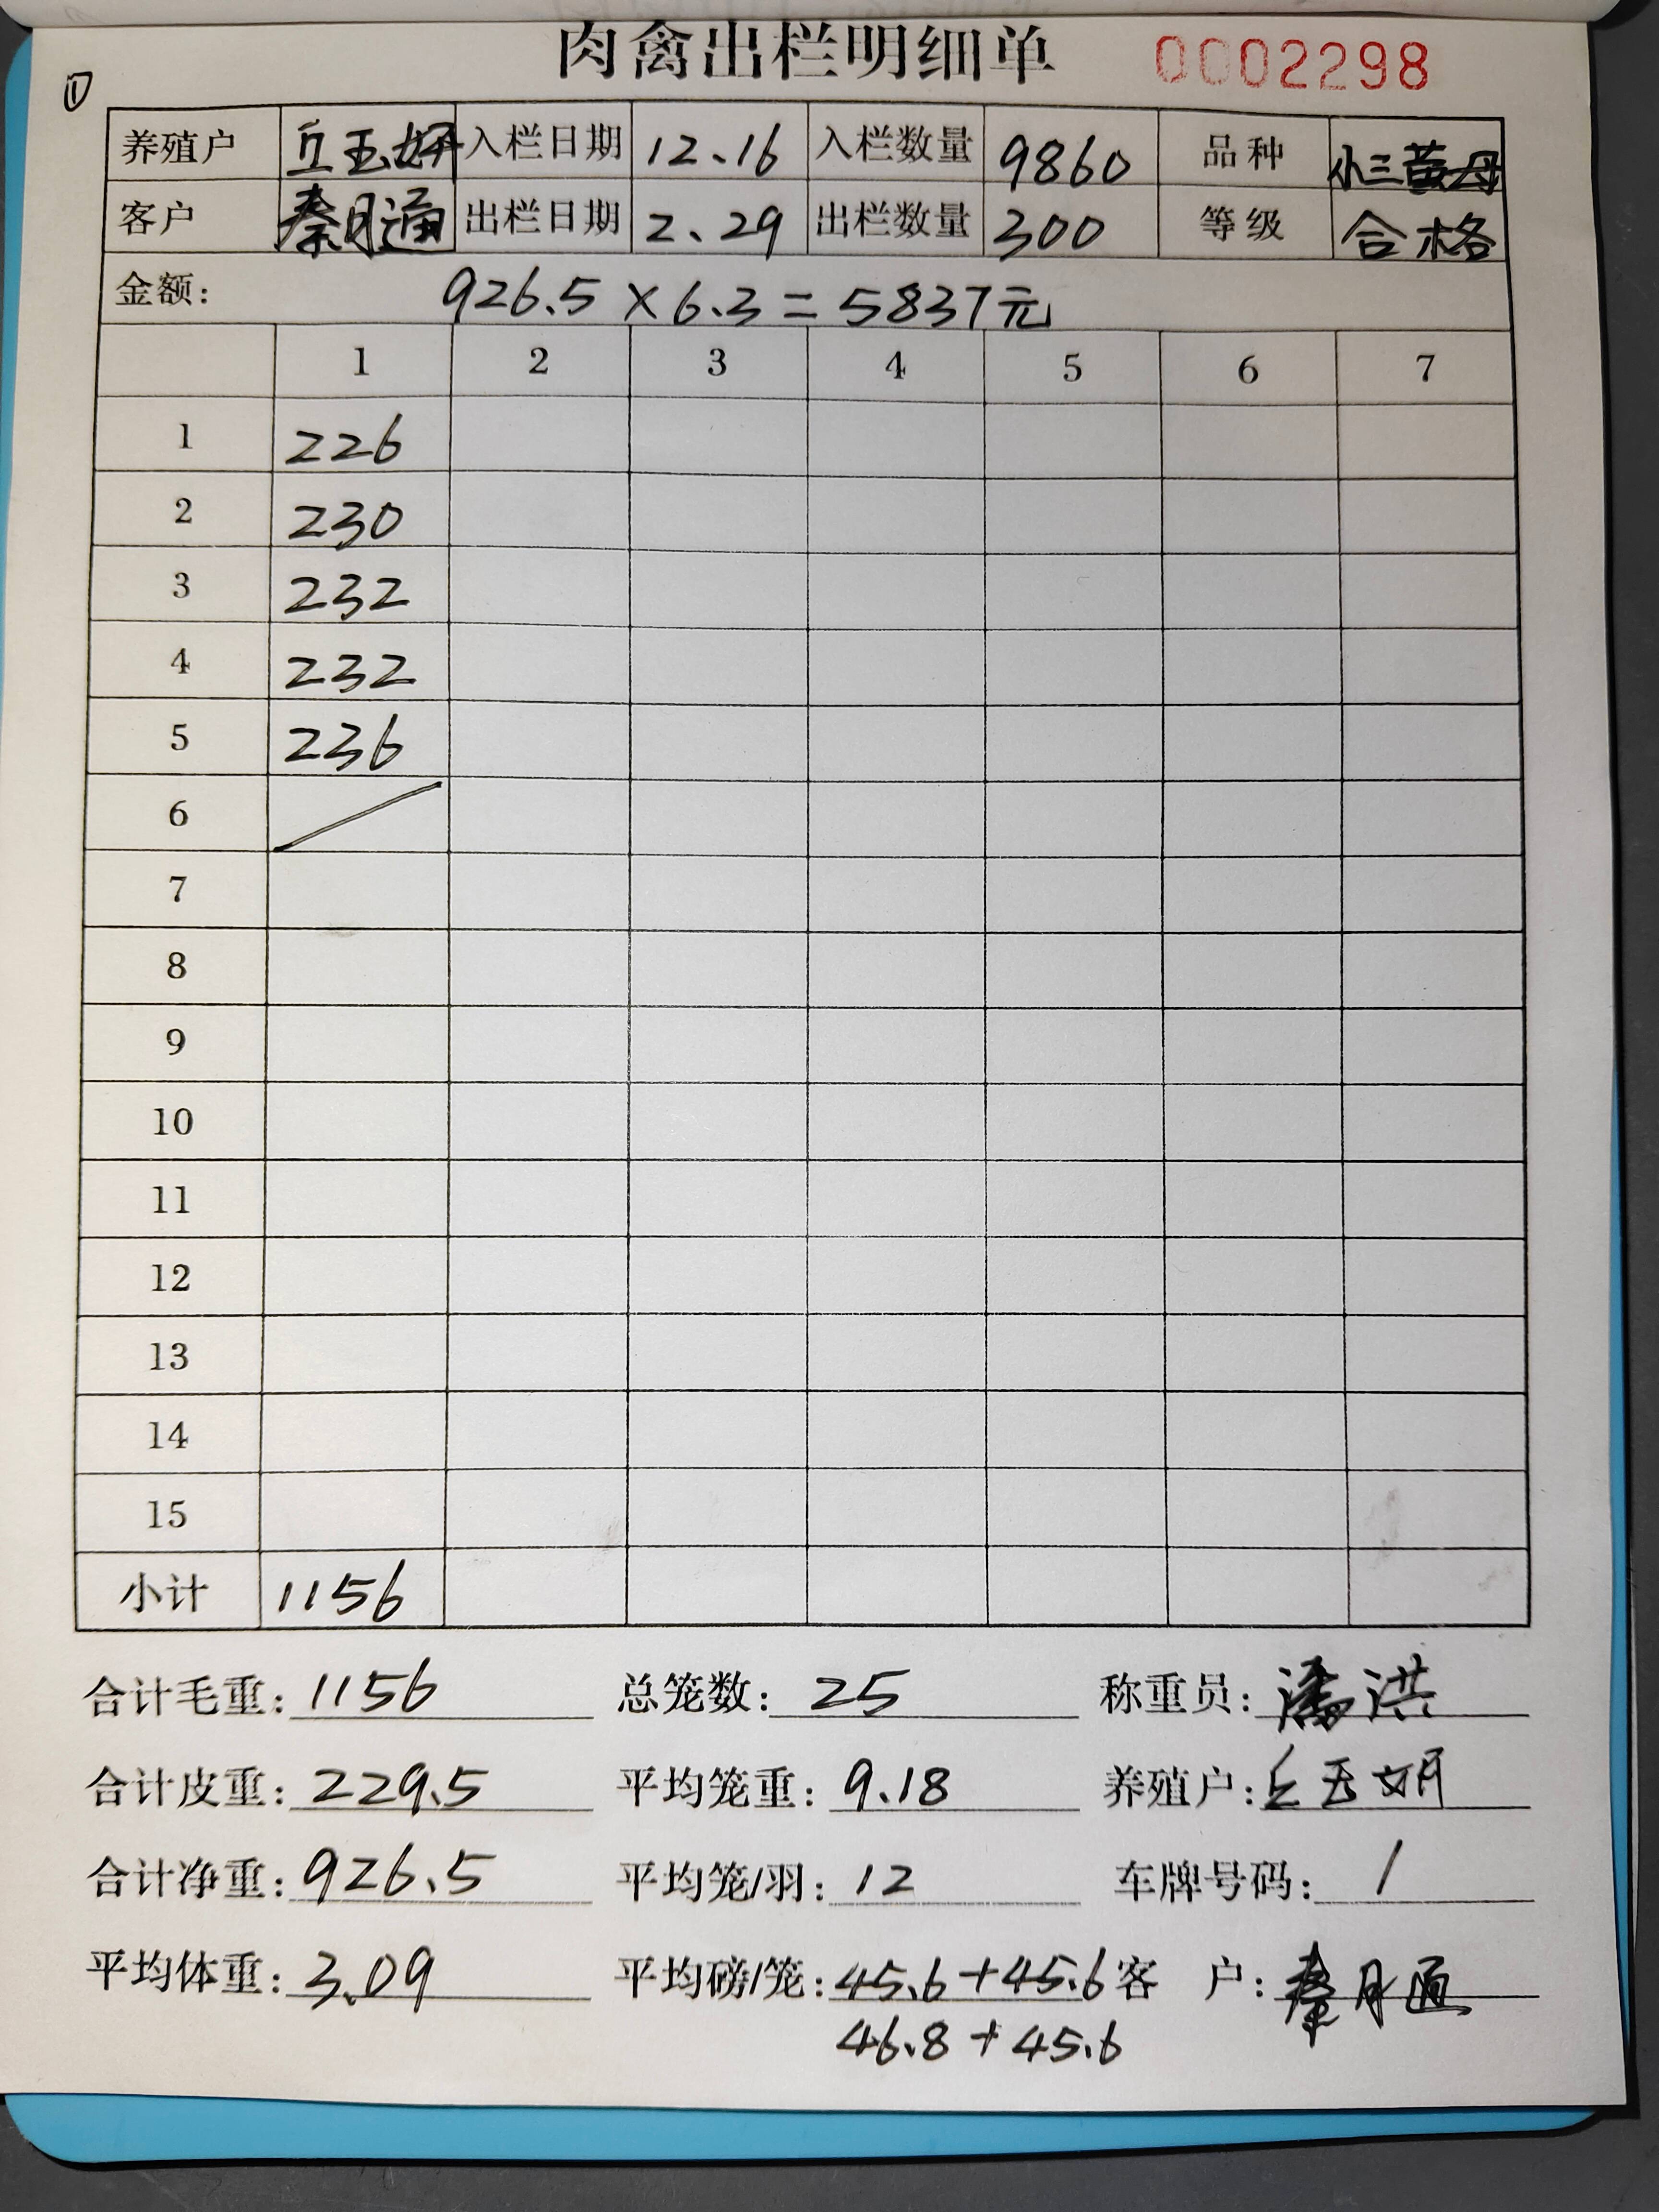 肉禽出栏明细单 0002298
①
养殖户 丘玉妍 入栏日期 12.16 入栏数量 9860 品种 小三黄母
客户 秦月通 出栏日期 2.29 出栏数量 300 等级 合格
金额: 926.5×6.3=5837元
1 2 3 4 5 6 7
1 226
2 230
3 232
4 232
5 236
6
7
8
9
10
11
12
13
14
15
小计 1156
合计毛重: 1156 总笼数: 25 称重员: 潘洪
合计皮重: 229.5 平均笼重: 9.18 养殖户: 丘玉妍
合计净重: 926.5 平均笼/羽: 12 车牌号码: /
平均体重: 3.09 平均磅/笼: 45.6+45.6 客 户: 秦月通
46.8+45.6